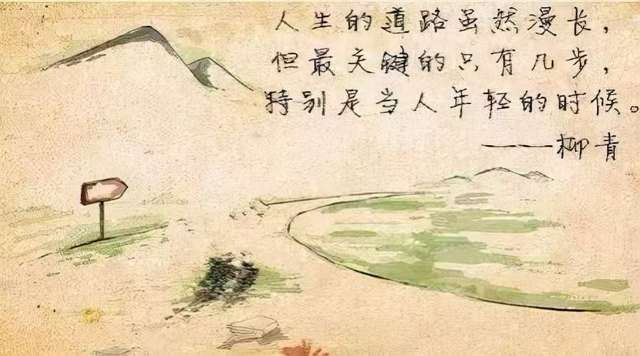 人生的道路虽然漫长，
但最关键的只有几步，
特别是当人年轻的时候。
——柳青